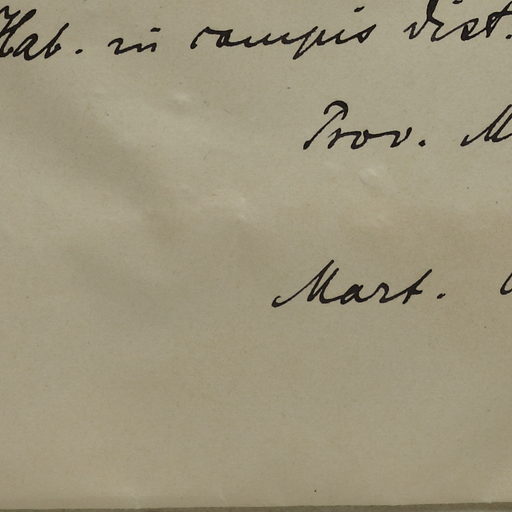 Hab. in campis dist.
Prov. M
Mart.